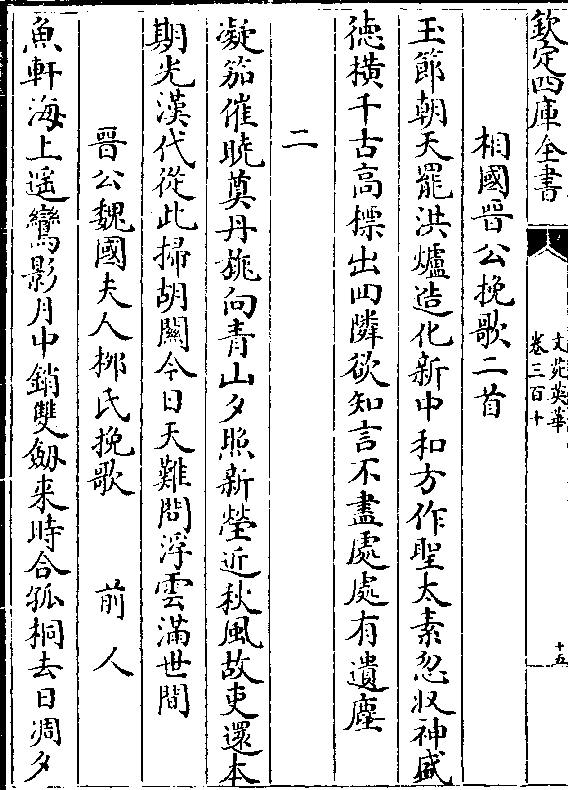 欽定四庫全書
文苑英華
卷三百十
十五
相國晋公挽歌二首
玉節朝天罷洪爐造化新中和方作聖太素忽収神盛
徳橫千古高標出四隣欲知言不盡處處有遺塵
二
凝笳催曉奠丹旐向青山夕照新塋近秋風故吏還本
期光漢代從此掃胡闗今日天難問浮雲滿世間
晋公魏國夫人栁氏挽歌 前人
魚軒海上遥鸞影月中銷雙劔来時合孤桐去日凋夕